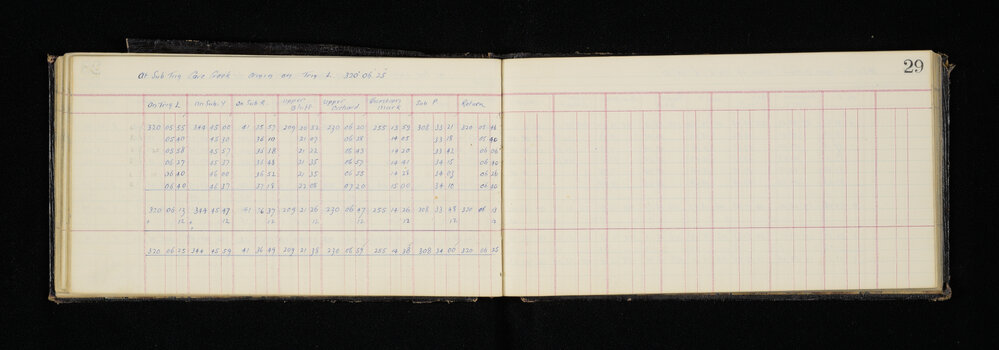 29
At Sub Trig Cave Creek Origin on Trig L. 320° 06' 25"
On Trig L On Sub. Y On Sub. R. Upper Bluff Upper Orchard Question mark Sub P Return
320 05 55 344 45 00 41 35 57 209 20 52 230 06 20 255 13 59 308 33 21 320 05
05 40 45 30 36 10 21 07 06 28 14 05 33 18 05
05 58 45 57 36 18 21 22 06 43 14 20 33 42 06
06 27 45 57 36 48 21 35 06 57 14 41 34 15 06
06 40 46 00 36 52 21 35 06 55 14 28 34 03 06 26
06 40 46 37 37 18 22 08 07 20 15 00 34 10 06
320 06 13 344 45 47 41 36 37 209 21 26 230 06 47 255 14 26 308 33 48 320 06 13
+ 12 + 12 12 12 12 12 12 12
320 06 25 344 45 59 41 36 49 209 21 38 230 06 59 255 14 38 308 34 00 320 06 25